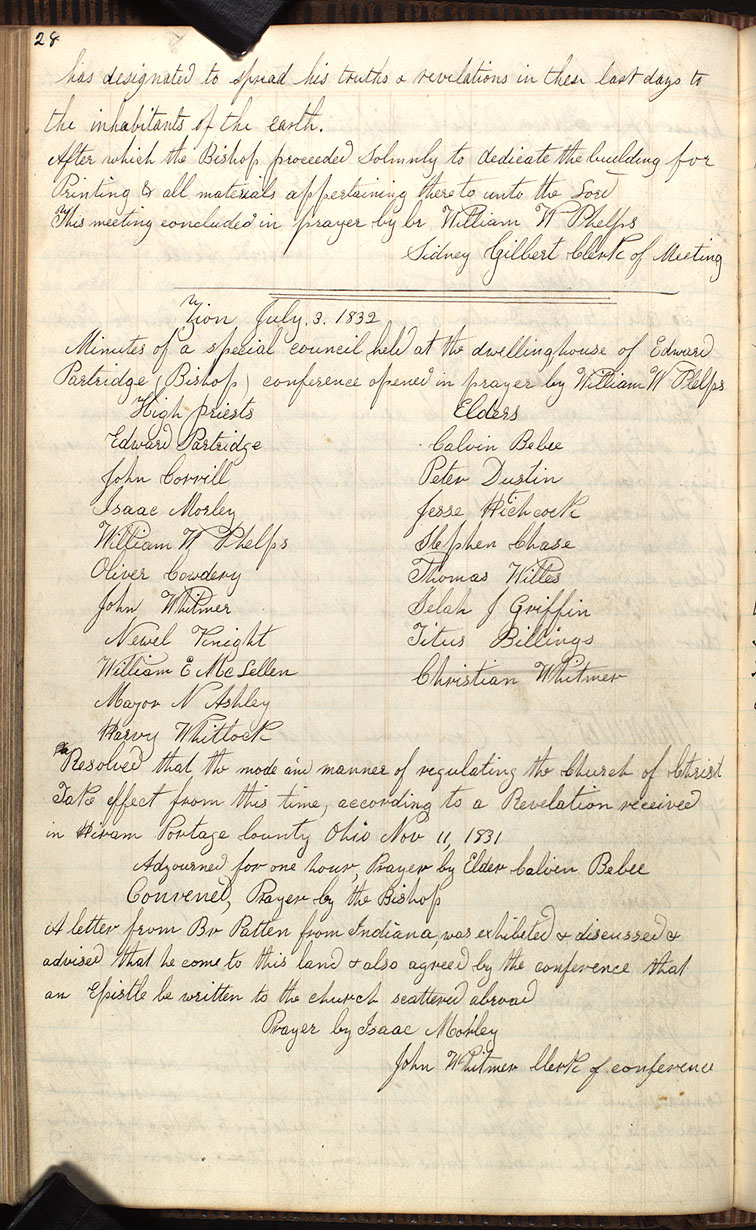 28
has designated to spread his truths & revelations in these last days to
the inhabitants of the earth.
After which the Bishop proceeded Solmnly to dedicate the building for
Printing & all materials appertaining there to unto the Lord
This meeting concluded in prayer by br William W Phelps
Sidney Gilbert Clerk of Meeting
Zion July. 3. 1832
Minutes of a special council held at the dwellinghouse of Edward
Partridge (Bishop) conference opened in prayer by William W Phelps
High priests Elders
Edward Partridge Calvin Bebee
John Corrill Peter Dustin
Isaac Morley Jesse Hichcock
William W Phelps Stephen Chase
Oliver Cowdery Thomas Willes
John Whitmer Selah J Griffin
Newel Knight Titus Billings
William E McLellen Christian Whitmer
Major N Ashley
Harvy Whitlock
Resolved that the mode and manner of regulating the Church of Christ
Take effect from this time, according to a Revelation received
in Hiram Portage County Ohio Nov 11, 1831
Adjourned for one hour, Prayer by Elder Calvin Bebee
Convened, Prayer by the Bishop
A letter from Br Patten from Indiana, was exhibited & discussed &
advised that he come to this land & also agreed by the conference that
an Epistle be written to the church scattered abroad
Prayer by Isaac Morley
John Whitmer Clerk of conference